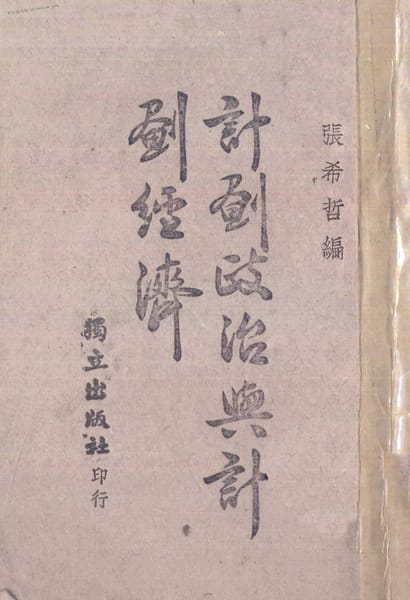 張希哲編
計劃政治與計
劃經濟
獨立出版社印行